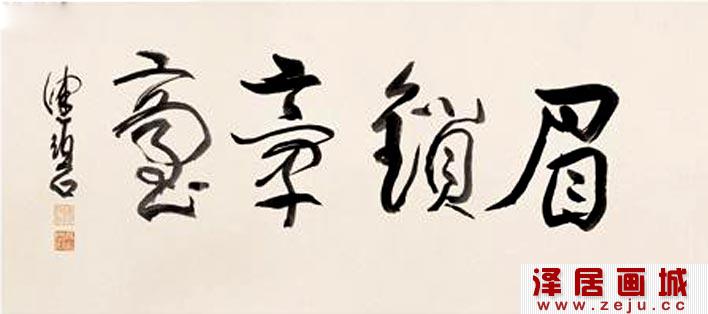 眉鎖章臺
泽居画城
www.zeju.cc